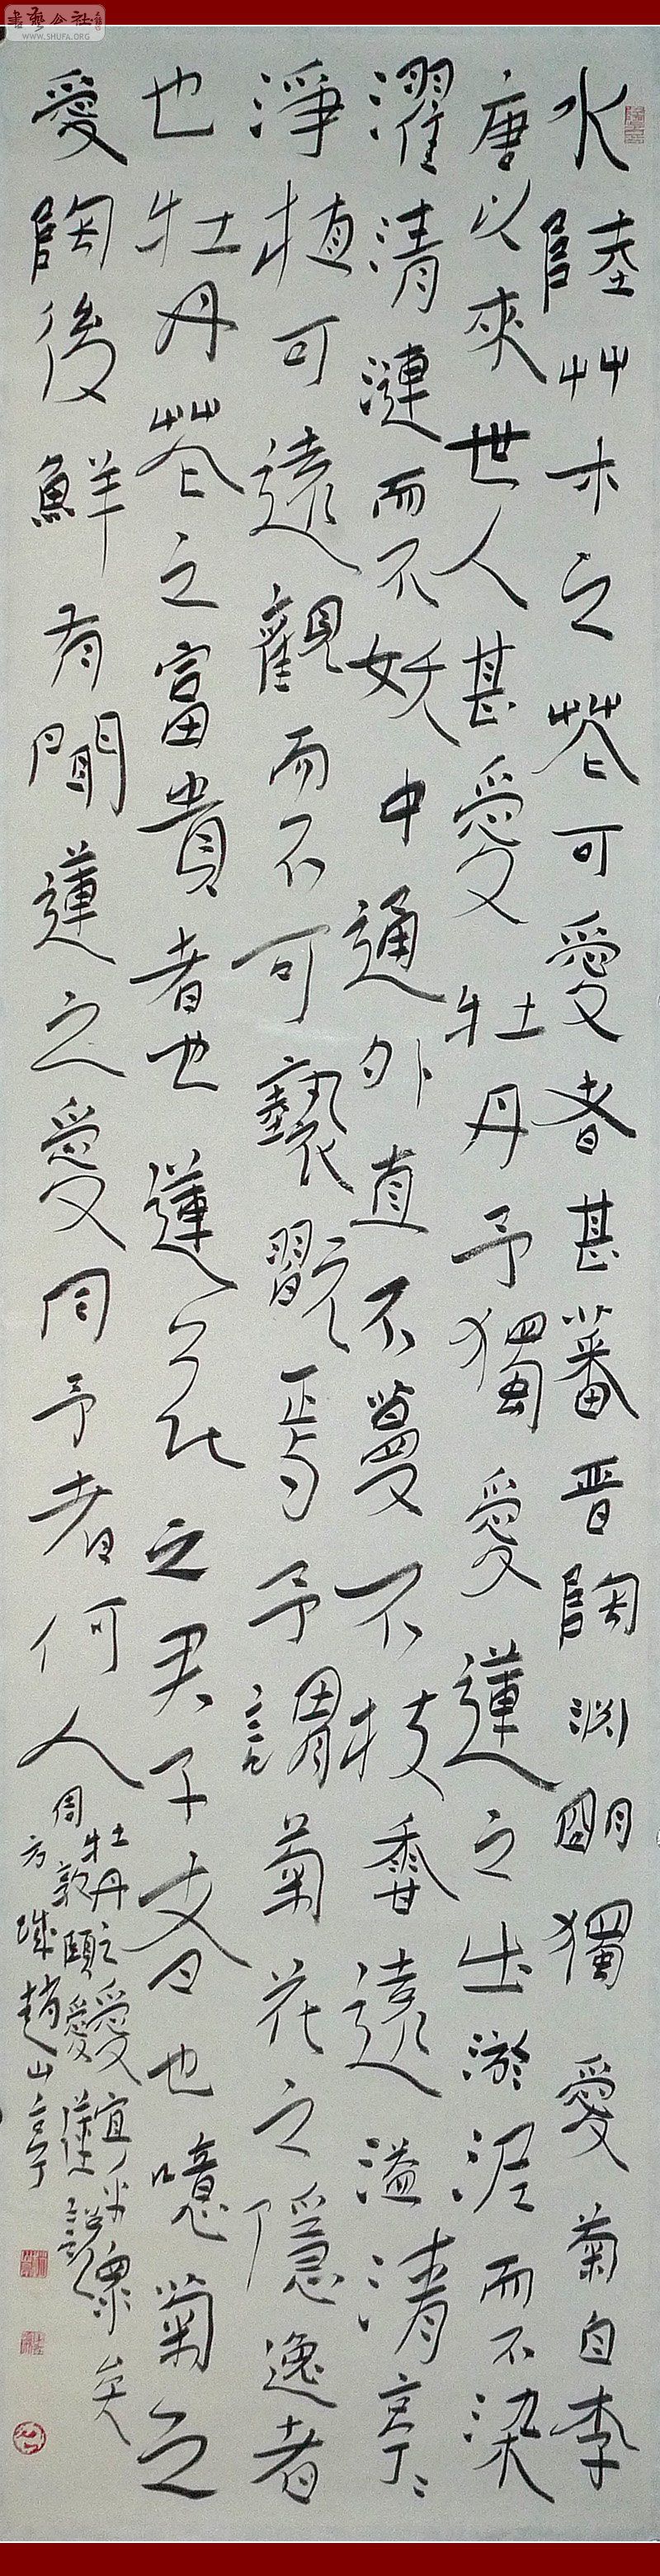 書藝公社
WWW.SHUFA.ORG
水陸艸木之花可愛者甚蕃晋陶渊明獨愛菊自李
唐以來世人甚愛牡丹予獨愛蓮之出淤泥而不染
濯清漣而不妖中通外直不蔓不枝香遠溢清亭〻
淨植可遠觀而不可褻翫焉予謂菊花之隱逸者
也牡丹花之富貴者也蓮花之君子者也噫菊之
愛陶後鮮有聞蓮之愛同予者何人
牡丹之愛宜乎衆矣
周敦頤愛蓮說
方城趙山亭